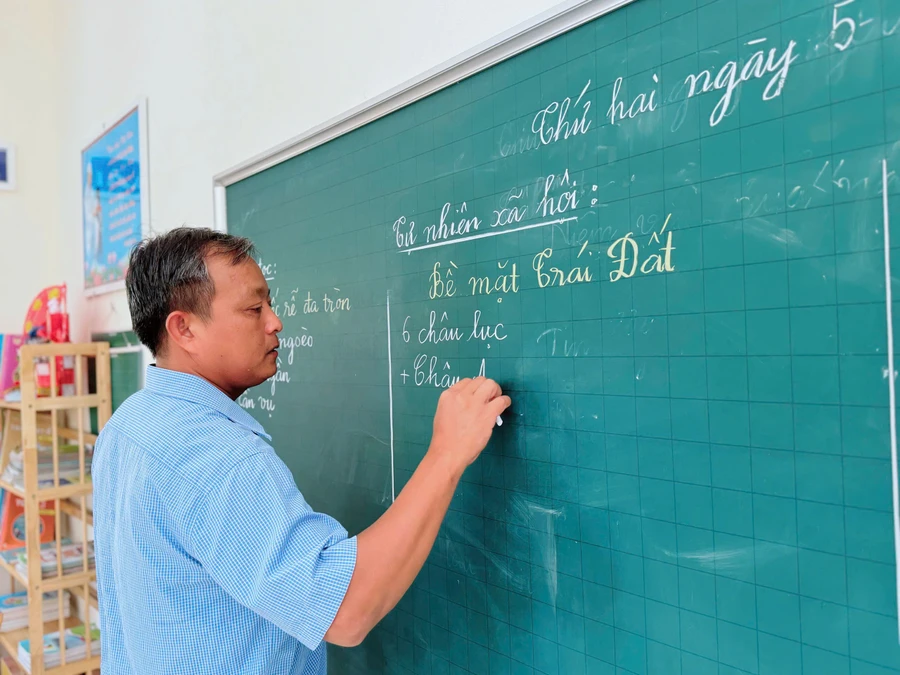 Thứ hai ngày 5
Tự nhiên xã hội:
Bề mặt Trái Đất
6 châu lục
+ Châu
rễ đa tròn
ngoèo